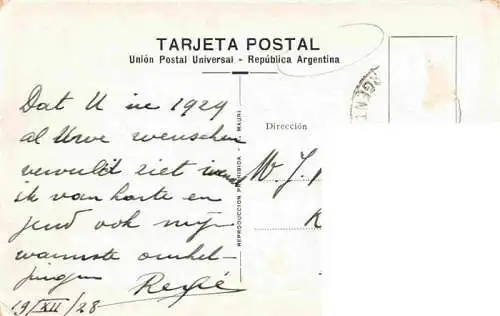 TARJETA POSTAL
Unión Postal Universal - República Argentina
Dat U in 1929
al Uwe wenschen
vervuld ziet wensch
ik van harte en
zend ook mijn
warmste omhel-
zingen
René
19/XII/28
Dirección
W. J.
REPRODUCCION PROHIBIDA - MAURI
ARGENT